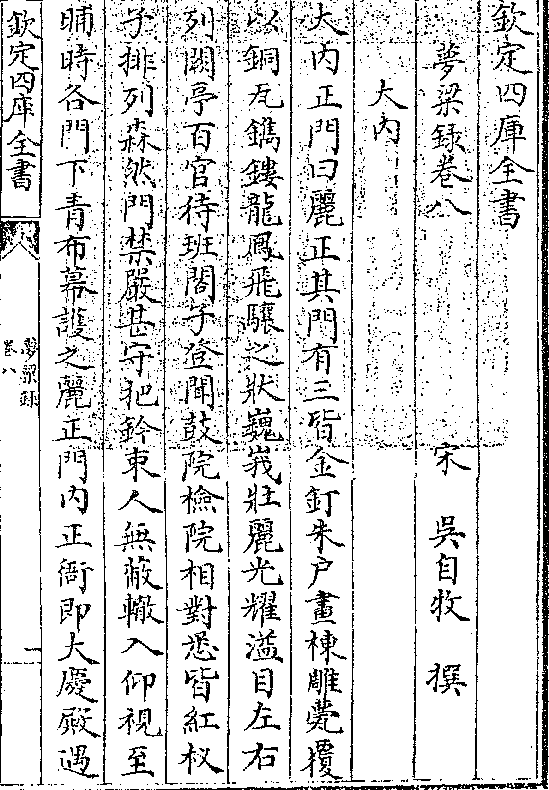 欽定四庫全書
夢粱錄卷八
宋 吳自牧 撰
大内
大内正門曰麗正其門有三皆金釘朱户畫棟雕甍覆
以銅瓦鐫鏤龍鳳飛驤之狀巍峩壯麗光耀溢目左右
列闕亭百官待班閣子登聞鼓院檢院相對悉皆紅杈
子排列森然門禁嚴甚守把鈐束人無敢輙入仰視至
晡時各門下青布幕護之麗正門内正衙即大慶殿遇
欽定四庫全書
夢粱錄
卷八
一